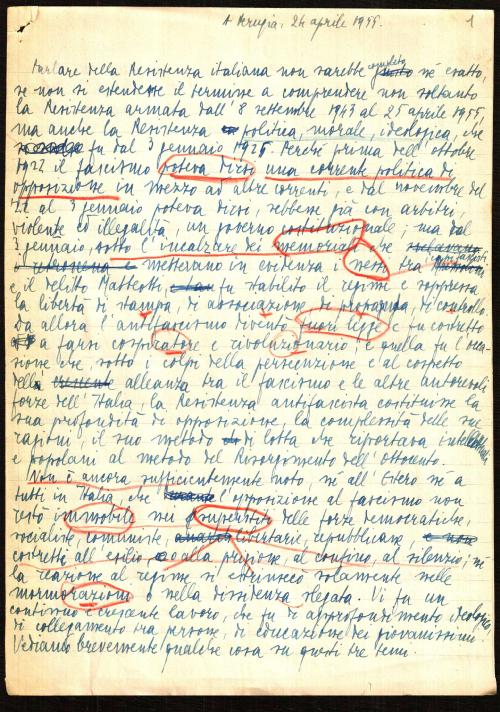 A Perugia, 24 aprile 1955.
1
Parlare della Resistenza italiana non sarebbe completo nè esatto,
se non si estendesse il termine a comprendere non soltanto
la Resistenza armata dall'8 settembre 1943 al 25 aprile 1955,
ma anche la Resistenza politica, morale, ideologica, che
fu dal 3 gennaio 1925. Perché prima dell'ottobre
1922 il fascismo poteva dirsi una corrente politica di
opposizione in mezzo ad altre correnti, e dal novembre del
22 al 3 gennaio poteva dirsi, sebbene già con arbitri,
violenze ed illegalità, un governo costituzionale; ma dal
3 gennaio, sotto l'incalzare dei memoriali che
e mettevano in evidenza i nessi tra
e il delitto Matteotti, fu stabilito il regime e soppressa
la libertà di stampa, di associazione, di propaganda, di controllo.
Da allora l'antifascismo diventò fuori legge e fu costretto
a farsi cospiratore e rivoluzionario, e quella fu l'occa-
sione che, sotto i colpi della persecuzione e al cospetto
della alleanza tra il fascismo e le altre autorevoli
forze dell'Italia, la Resistenza antifascista costituisse la
sua profondità di opposizione, la complessità delle sue
ragioni, il suo metodo di lotta che riportava intellettuali
e popolani al metodo del Risorgimento dell'Ottocento.
Non è ancora sufficientemente noto, nè all'Estero nè a
tutti in Italia, che l'opposizione al fascismo non
restò immobile nei superstiti delle forze democratiche,
socialiste, comuniste, libertarie, repubblicane
costretti all'esilio, o alla prigione, al confino, al silenzio; nè
la reazione al regime si estrinsecò solamente nelle
mormorazioni o nella dissidenza slegata. Vi fu un
continuo e crescente lavoro, che fu di approfondimento ideologico,
di collegamento tra persone, di educazione dei giovanissimi.
Vediamo brevemente qualche cosa su questi tre temi.